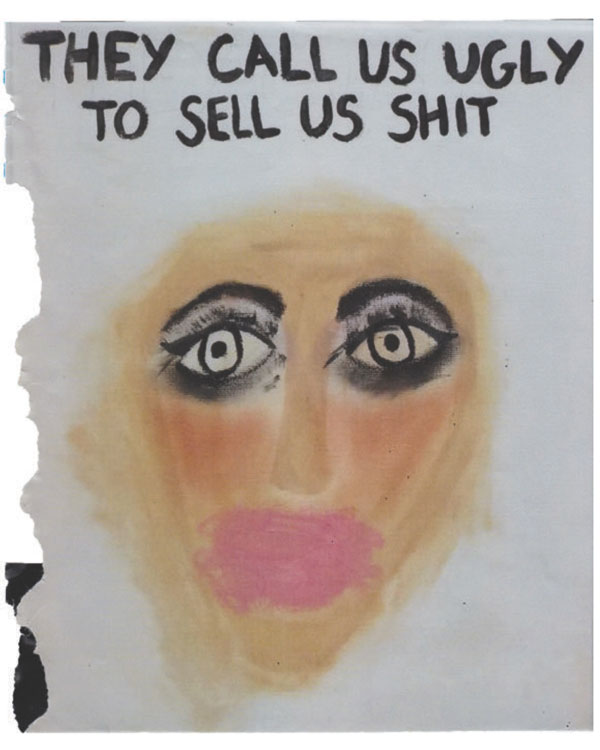 THEY CALL US UGLY
TO SELL US SHIT